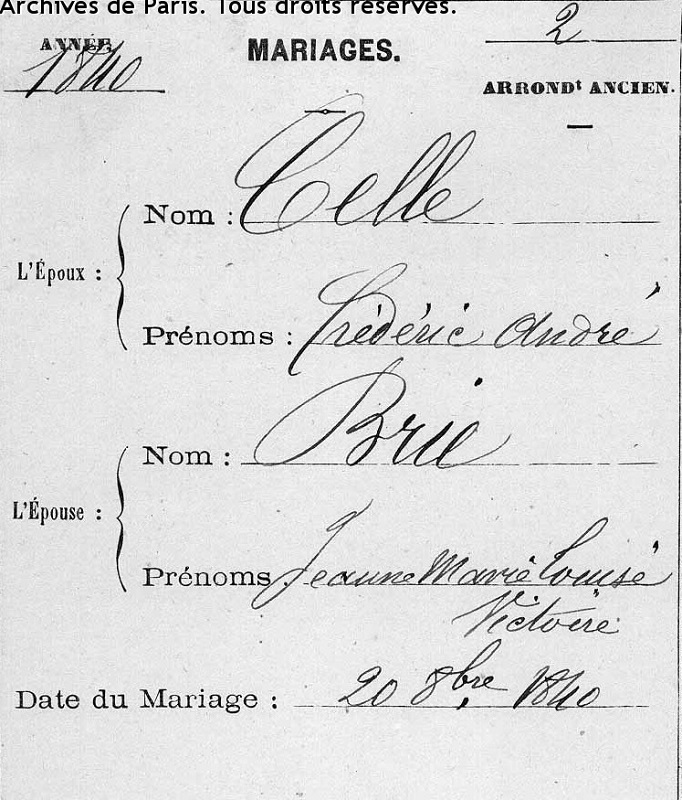 Archives de Paris. Tous droits réservés.
ANNÉE
1840
MARIAGES.
2
ARRONDt ANCIEN.
L'Époux :
Nom : Celle
Prénoms : Frédéric André
L'Épouse :
Nom : Brie
Prénoms : Jeanne Marie Louise
Victoire
Date du Mariage : 20 8bre 1840